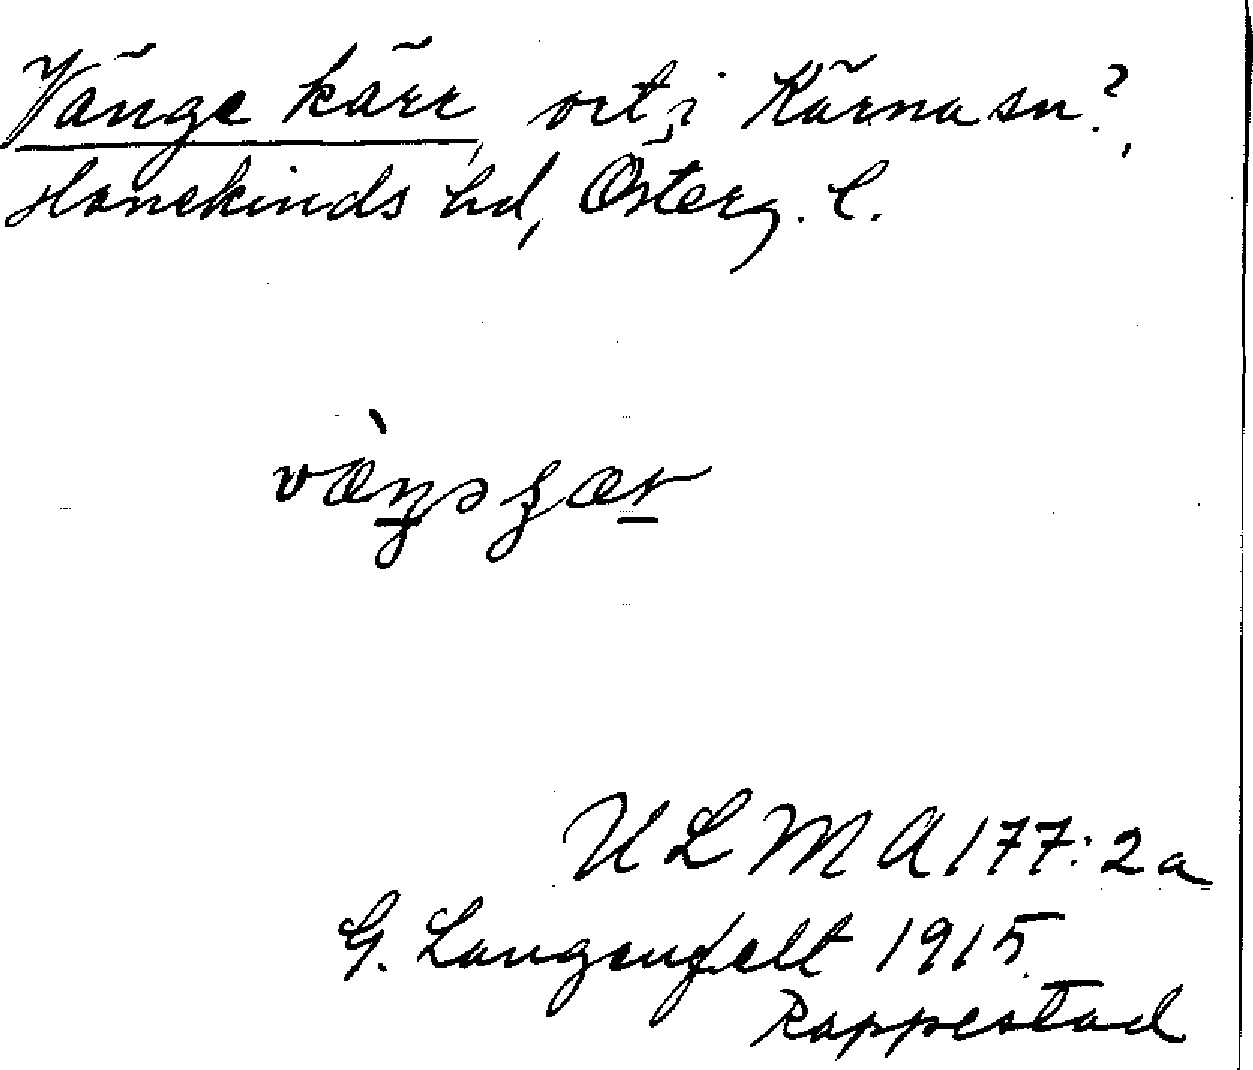 Vänge kärr, ort i Kärna sn?,
Hanekinds hd, Österg. l.
væ̀ŋə ȿær
ULMA 177:2a
G. Langenfelt 1915
Rappestad